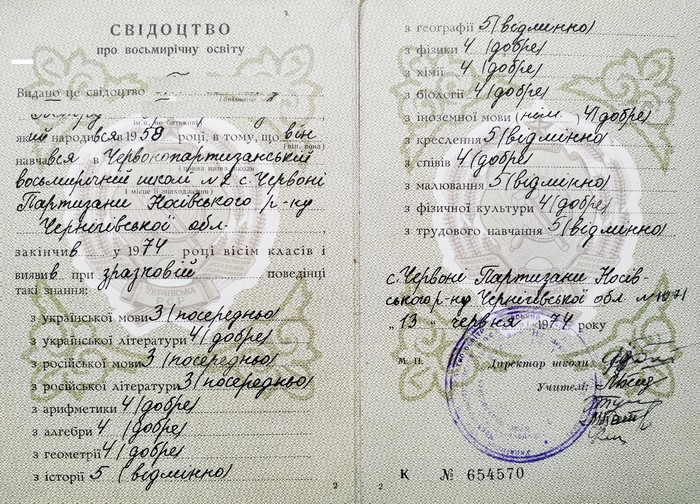 СВІДОЦТВО
про восьмирічну освіту
Видано це свідоцтво
який народився в 1959 році, в тому, що він
(він, вона)
навчався в Червонопартизанській
(повна назва школи
восьмирічній школі №2 с. Червоні
і місце її знаходження)
Партизани Носівського р-ну
Чернігівської обл.
закінчив у 1974 році вісім класів і
виявив при зразковій поведінці
такі знання:
з української мови 3 (посередньо)
з української літератури 4 (добре)
з російської мови 3 (посередньо)
з російської літератури 3 (посередньо)
з арифметики 4 (добре)
з алгебри 4 (добре)
з геометрії 4 (добре)
з історії 5 (відмінно)
2
з географії 5 (відмінно)
з фізики 4 (добре)
з хімії 4 (добре)
з біології 4 (добре)
з іноземної мови (нім. 4 (добре)
з креслення 5 (відмінно)
з співів 4 (добре)
з малювання 5 (відмінно)
з фізичної культури 4 (добре)
з трудового навчання 5 (відмінно)
с. Червоні Партизани Носів-
ського р-ну Чернігівської обл. №
„13" червня 1974 року
М. П. Директор школи
Учителі:
К № 654570
2